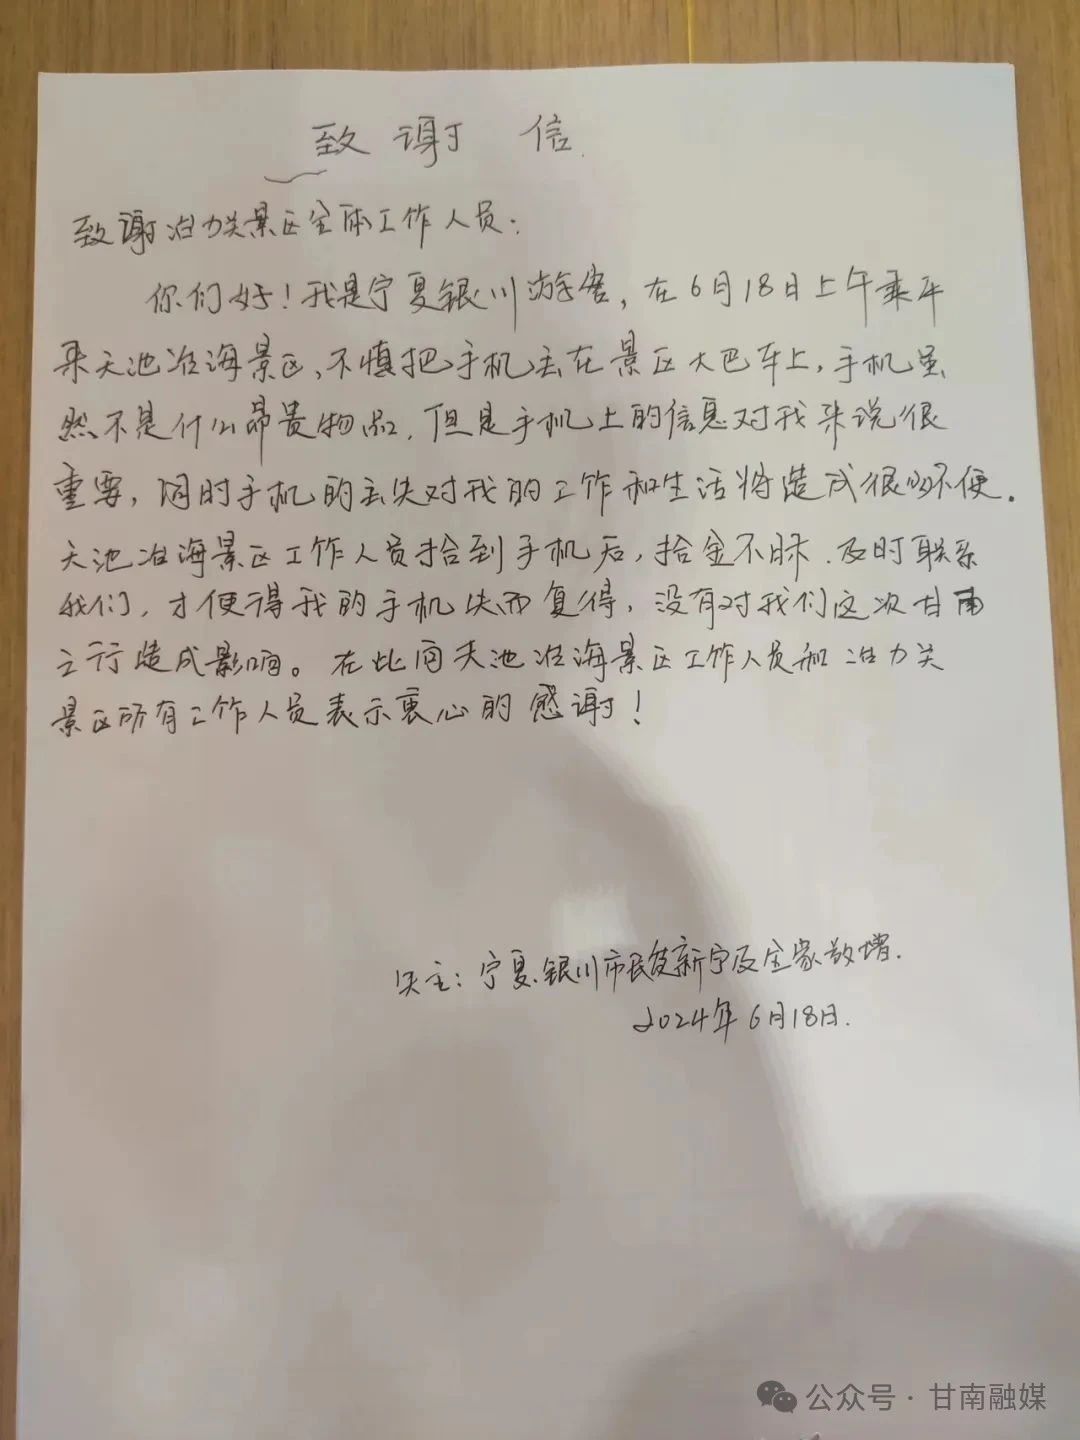 致谢信
致谢冶力关景区全体工作人员：
你们好！我是宁夏银川游客，在6月18日上午乘车
来天池冶海景区，不慎把手机丢在景区大巴车上，手机虽
然不是什么昂贵物品，但是手机上的信息对我来说很
重要，同时手机的丢失对我的工作和生活将造成很多不便。
天池冶海景区工作人员拾到手机后，拾金不昧，及时联系
我们，才使得我的手机失而复得，没有对我们这次甘南
之行造成影响。在此向天池冶海景区工作人员和冶力关
景区所有工作人员表示衷心的感谢！
失主：宁夏银川市民 新宁及全家敬赠.
2024年6月18日.
公众号·甘南融媒